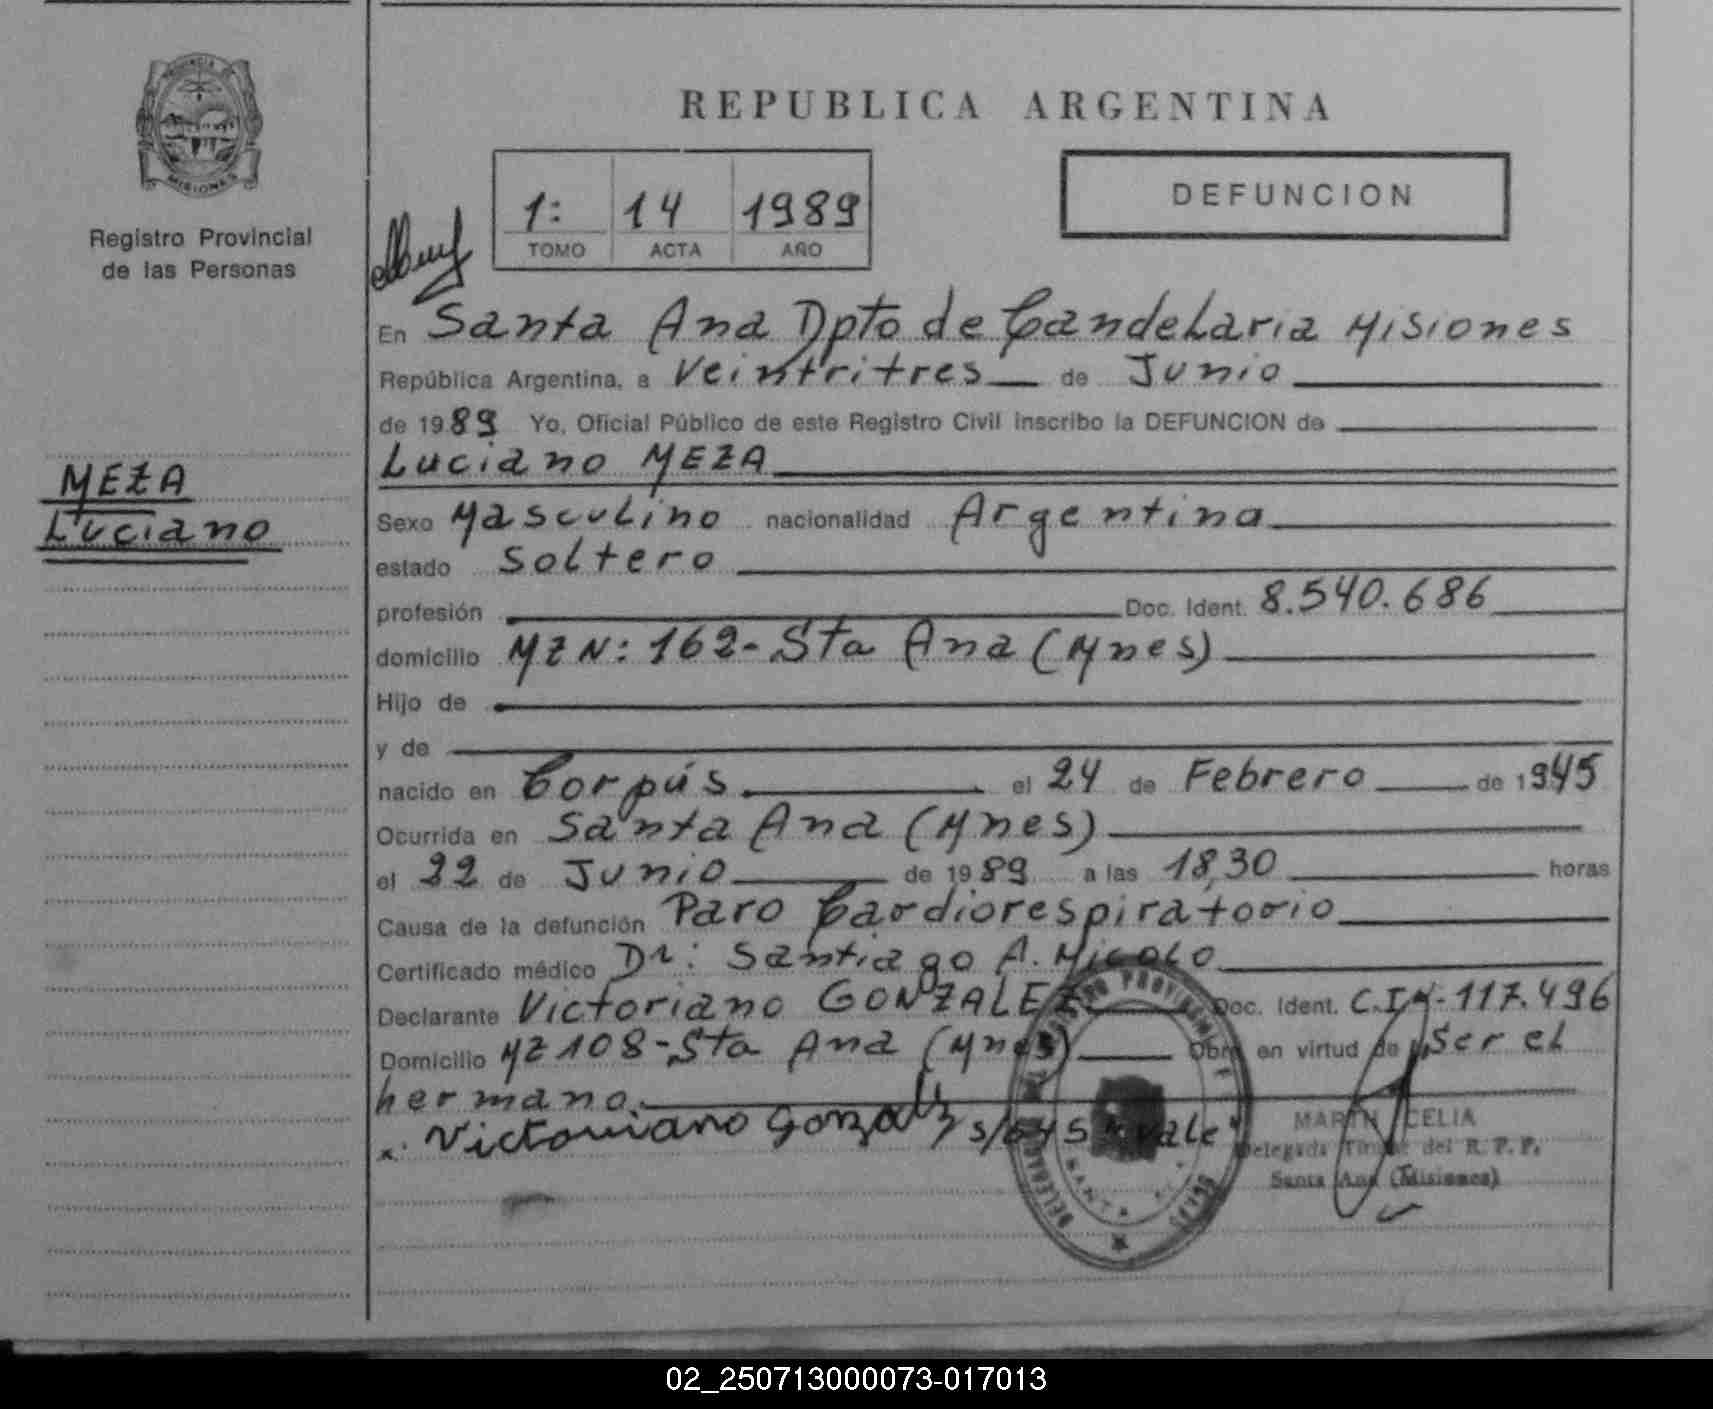 PROVINCIA DE
MISIONES
Registro Provincial
de las Personas
MEZA
Luciano
REPUBLICA ARGENTINA
1: 14 1989
TOMO ACTA AÑO
DEFUNCION
En Santa Ana Dpto de Candelaria Misiones
República Argentina, a Veintritres de Junio
de 1989 Yo, Oficial Público de este Registro Civil inscribo la DEFUNCION de
Luciano MEZA
Sexo Masculino nacionalidad Argentina
estado Soltero
profesión Doc. Ident. 8.540.686
domicilio MZ N: 162- Sta Ana (Mnes)
Hijo de
y de
nacido en Corpús el 24 de Febrero de 1945
Ocurrida en Santa Ana (Mnes)
el 22 de Junio de 1989 a las 18,30 horas
Causa de la defunción Paro Cardiorespiratorio
Certificado médico Dr: Santiago A. Micolo
Declarante Victoriano GONZALEZ Doc. Ident. C.I.N- 117.496
Domicilio MZ 108- Sta Ana (Mnes) Obra en virtud de Ser el
hermano.
x. Victoriano Gonzalez "Vale"
CELIA
Delegada Titular del R. P. P.
Santa Ana (Misiones)
02_250713000073-017013